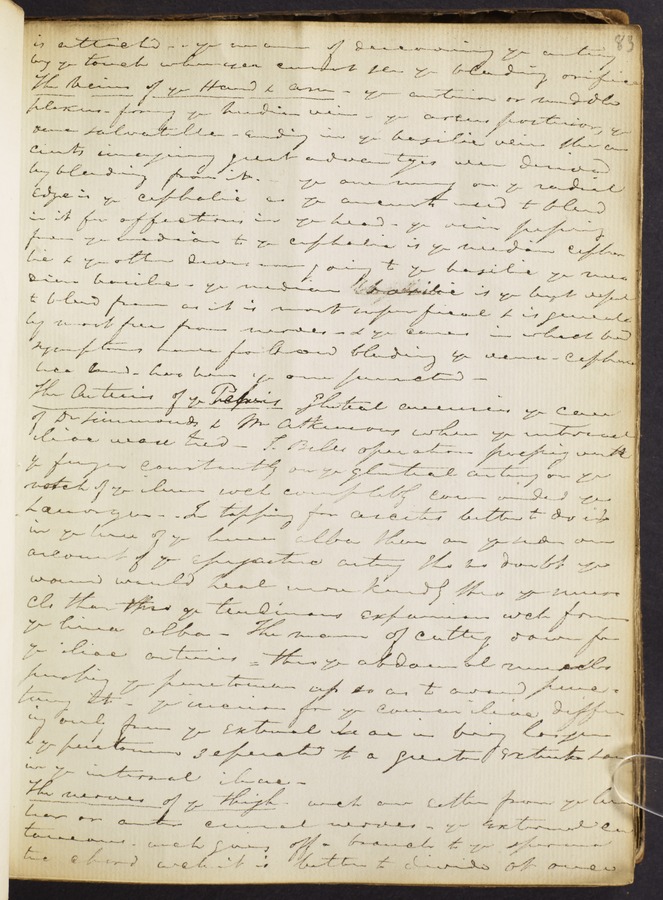 83
is attached - ye manner of discovering ye artery
by ye touch when you cannot see ye bleeding orifice
The Veins of ye Hand & arm - ye anterior or middle
plexus - forming ye median vein - ye plexus posterior, ye
vena salvatella - ending in ye basilic vein the an
cients imagining great advantages were derived
by bleeding from it. - ye one running on ye radial
edge is ye cephalic as ye ancients used to bleed
in it for affections in ye head - ye vein passing
from ye median to ye cephalic is ye median cepha
lic & ye other division joins to ye basilic ye me
dian basilic - ye median basilic is ye best vessel
to bleed from as it is most superficial & is general
ly most free from nerves - & ye cases in which bad
symptoms have followed bleeding ye vena - cepha
lica has been ye one punctured -
The Arteries of ye Pelvis Gluteal aneurism ye case
of Dr Simmonds & Mr Atkinsons when ye internal
iliac was tied - J. Bells operation pressing with
ye finger constantly on ye gluteal artery on ye
notch of ye ilium wch completely commanded ye
hæmorrge - In tapping for ascites better to do it
in ye line of ye linea alba than on ye side on
account of ye epigastric artery tho no doubt ye
wound would heal more kindly thro ye mus
cle than thro ye tendinous expansion wch forms
ye linea alba - The manner of cutting down for
ye iliac arteries = thro ye abdominal muscles
pushing ye peritoneum up so as to avoid punc-
turing it - ye incision for ye common iliac differ
ing only from ye external iliac in being larger
& ye peritoneum separated to a greater extent than
in ye internal iliac -
The nerves of ye Thigh. wch are either from ye lum
bar or anterior crural nerves - ye External cu
taneous. wch gives off a branch to ye spermatic
chord wch it is better to divide at once